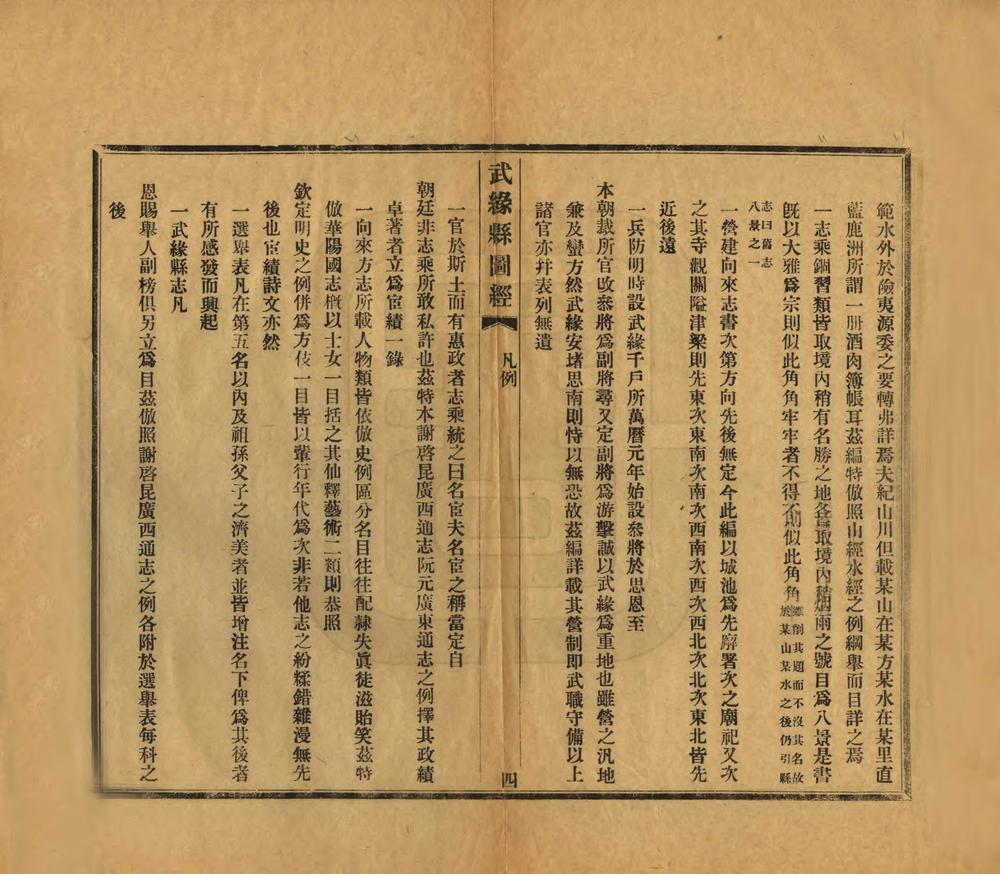 範水外於儉夷源委之要轉弗詳焉夫紀山川但載某山在某方某水在某里直
藍鹿洲所謂一册酒肉簿帳耳茲編特倣照山經水經之例綱舉而目詳之焉
一志乘錮習類皆取境內稍有名勝之地各冒取境內稱烟雨之號目爲八景是書
旣以大雅爲宗則似此角角牢牢者不得不削似此角角雖削其題而不沒其名故於某山某水之後仍引縣
志曰舊志八景之一
一營建向來志書次第方向先後無定今此編以城池爲先廨署次之廟祀又次
之其寺觀關隘津梁則先東次東南次南次西南次西次西北次北次東北皆先
近後遠
一兵防明時設武緣千戶所萬曆元年始設叅將於思恩至
本朝裁所官改叅將爲副將尋又定副將爲游擊誠以武緣爲重地也雖營之汎地
兼及蠻方然武緣安堵思南則恃以無恐故茲編詳載其營制即武職守備以上
諸官亦幷表列無遺
武緣縣圖經
凡例
四
一官於斯土而有惠政者志乘統之曰名宦夫名宦之稱當定自
朝廷非志乘所敢私許也茲特本謝啓昆廣西通志阮元廣東通志之例擇其政績
卓著者立爲宦績一錄
一向來方志所載人物類皆依倣史例區分名目往往配隷失眞徒滋貽笑茲特
倣華陽國志槪以士女一目括之其仙釋藝術二類則恭照
欽定明史之例併爲方伎一目皆以輩行年代爲次非若他志之紛糅錯雜漫無先
後也宦績詩文亦然
一選舉表凡在第五名以內及祖孫父子之濟美者並皆增注名下俾爲其後者
有所感發而興起
一武緣縣志凡
恩賜舉人副榜俱另立爲目茲倣照謝啓昆廣西通志之例各附於選舉表每科之
後